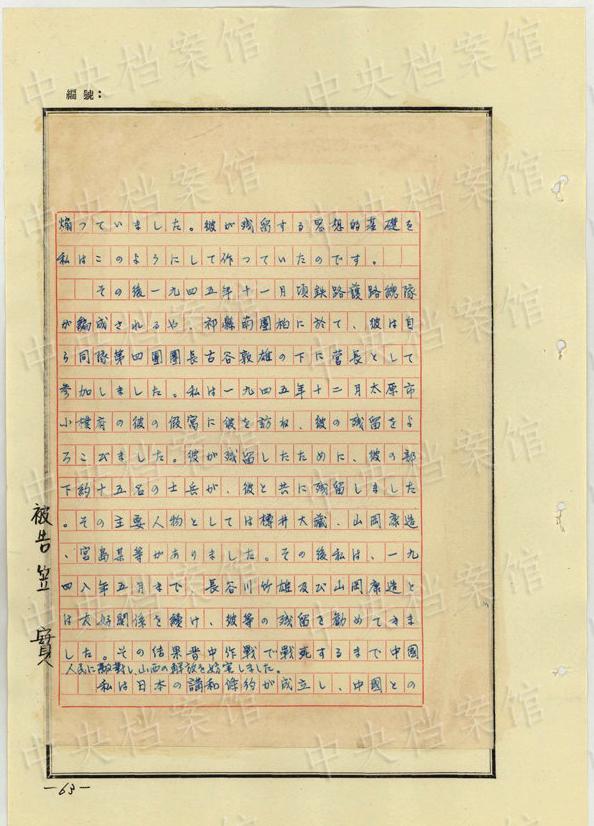 編號：
煽つていました。彼が残留する思想的基礎を
私はこのようにして作つていたのです。
その後一九四五年十一月頃鉄路護路總隊
が編成されるや、祁縣南團柏に於て、彼は自
ら同隊第四團團長古谷敦雄の下に営長として
参加しました。私は一九四五年十二月太原市
小楼府の彼の假寓に彼を訪ね、彼の残留をよ
ろこびました。彼が残留したために、彼の部
下約十五名の士兵が、彼と共に残留しました
。その主要人物としては樽井大藏、山岡康造
、宮島某等がありました。その後私は、一九
四八年五月まで、長谷川竹雄及び山岡康造と
は友好関係を続け、彼等の残留を勧めてきま
した。その結果晋中作戦で戦死するまで中國
人民に敵對し、山西の解放を妨害しました。
私は日本の講和條約が成立し、中國との
被告 笠 實
—63—
中央档案馆